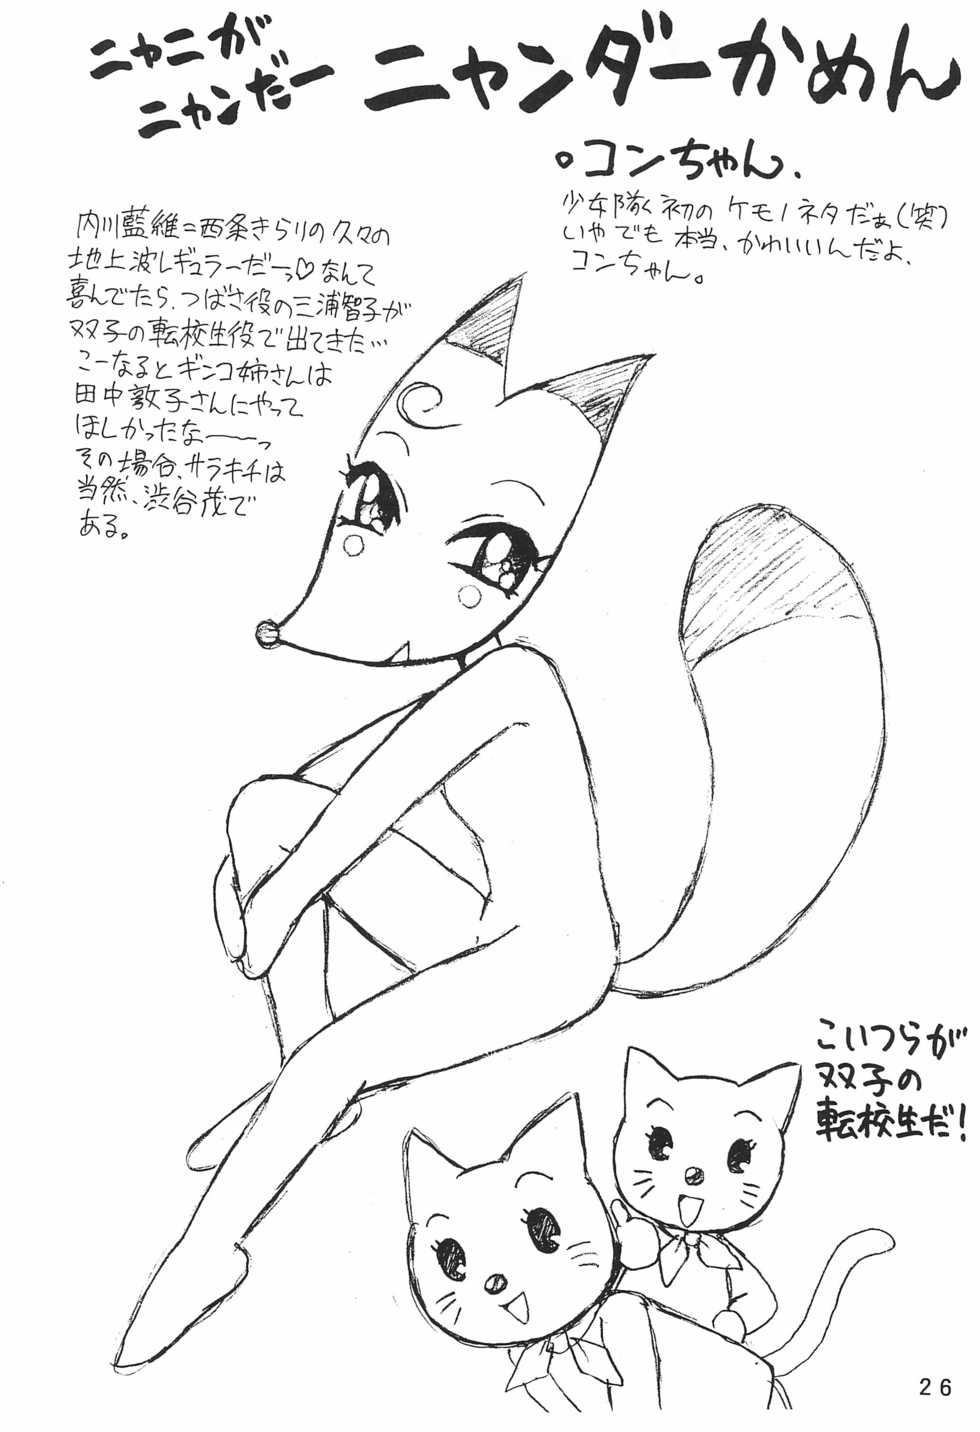 ニャニが
ニャンだー
ニャンダーかめん
。コンちゃん.
少女隊く初の ケモノネタだぁ(笑)
いやでも 本当、かわいいんだよ、
コンちゃん。
内川藍維=西条きらりの久々の
地上波レギュラーだーっ♡なんて
喜んでたら、つばさ役の三浦智子が
双子の転校生役で出てきた…
こーなるとギンコ姉さんは
田中敦子さんにやって
ほしかったな〜〜っ
その場合、サラキチは
当然、渋谷茂で
ある。
こいつらが
双子の
転校生だ!
26